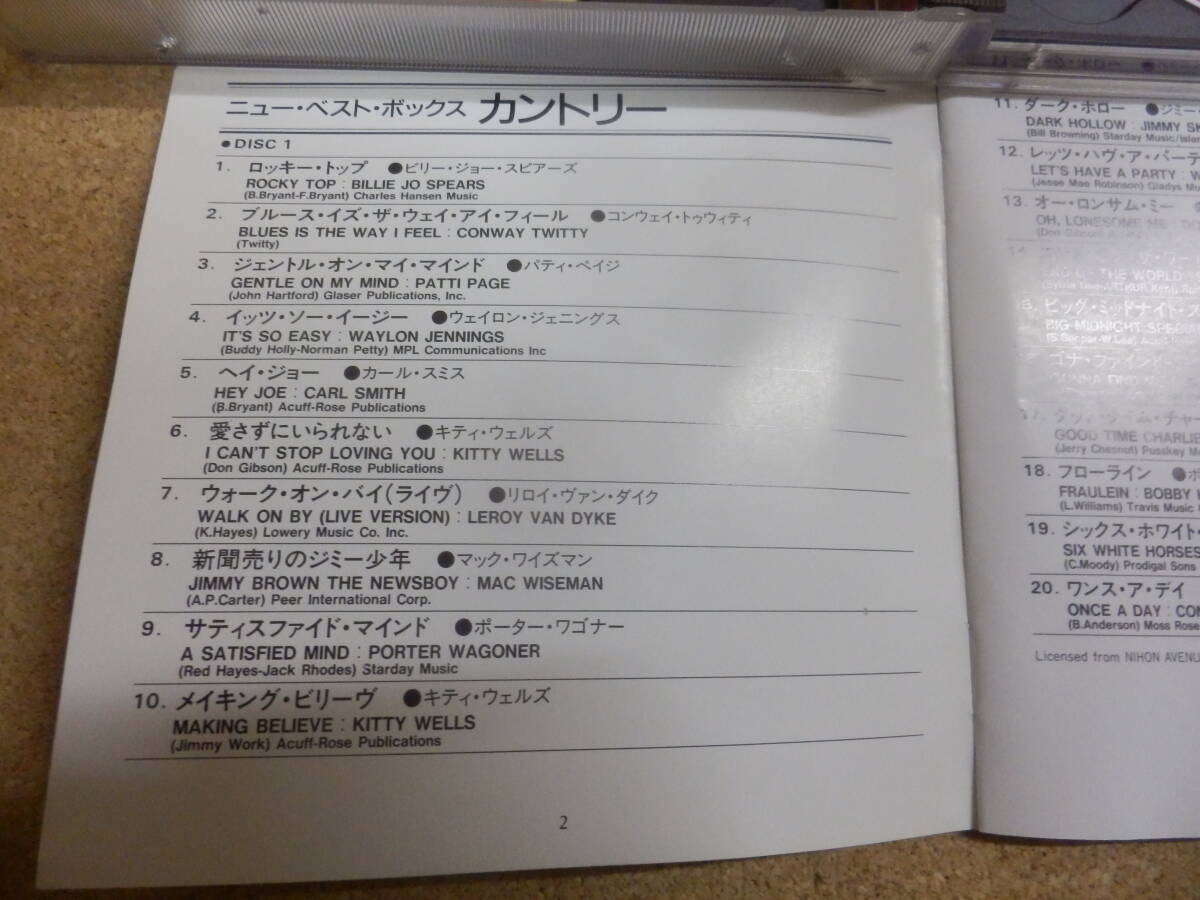 ニュー・ベスト・ボックス カントリー
●DISC 1
1. ロッキー・トップ ●ビリー・ジョー・スピアーズ
ROCKY TOP : BILLIE JO SPEARS
(B.Bryant-F.Bryant) Charles Hansen Music
2. ブルース・イズ・ザ・ウェイ・アイ・フィール ●コンウェイ・トゥウィティ
BLUES IS THE WAY I FEEL : CONWAY TWITTY
(Twitty)
3. ジェントル・オン・マイ・マインド ●パティ・ペイジ
GENTLE ON MY MIND : PATTI PAGE
(John Hartford) Glaser Publications, Inc.
4. イッツ・ソー・イージー ●ウェイロン・ジェニングス
IT'S SO EASY : WAYLON JENNINGS
(Buddy Holly-Norman Petty) MPL Communications Inc
5. ヘイ・ジョー ●カール・スミス
HEY JOE : CARL SMITH
(B.Bryant) Acuff-Rose Publications
6. 愛さずにいられない ●キティ・ウェルズ
I CAN'T STOP LOVING YOU : KITTY WELLS
(Don Gibson) Acuff-Rose Publications
7. ウォーク・オン・バイ(ライヴ) ●リロイ・ヴァン・ダイク
WALK ON BY (LIVE VERSION) : LEROY VAN DYKE
(K.Hayes) Lowery Music Co. Inc.
8. 新聞売りのジミー少年 ●マック・ワイズマン
JIMMY BROWN THE NEWSBOY : MAC WISEMAN
(A.P.Carter) Peer International Corp.
9. サティスファイド・マインド ●ポーター・ワゴナー
A SATISFIED MIND : PORTER WAGONER
(Red Hayes-Jack Rhodes) Starday Music
10. メイキング・ビリーヴ ●キティ・ウェルズ
MAKING BELIEVE : KITTY WELLS
(Jimmy Work) Acuff-Rose Publications
2
11. ダーク・ホロー ●ジミー・
DARK HOLLOW : JIMMY SK
(Bill Browning) Starday Music/Islan
12. レッツ・ハヴ・ア・パーテ
LET'S HAVE A PARTY : W
(Jesse Mae Robinson) Gladys Mu
13. オー・ロンサム・ミー
OH, LONESOME ME
(Don Gibson)
OF THE WORLD
ビッグ・ミッドナイト・ス
BIG MIDNIGHT SPECIA
ゴナ・ファインド
17.
GOOD TIME CHARLIE
(Jerry Chesnut) Passkey Mu
18. フローライン
FRAULEIN : BOBBY
(L.Williams) Travis Music
19. シックス・ホワイト・
SIX WHITE HORSES
(C.Moody) Prodigal Sons
20. ワンス・ア・デイ
ONCE A DAY : CON
(B.Anderson) Moss Rose
Licensed from NIHON AVENU